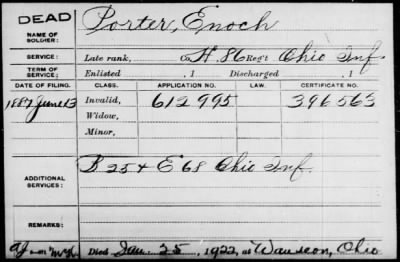 DEAD Porter, Enoch
NAME OF SOLDIER:
SERVICE: Late rank, Co. H. 86 Reg't Ohio Inf.
TERM OF SERVICE: Enlisted , 1 Discharged , 1
DATE OF FILING. CLASS. APPLICATION NO. LAW. CERTIFICATE NO.
1887 June 13 Invalid, 612995 396563
Widow,
Minor,
ADDITIONAL SERVICES: B 25 + E 68 Ohio Inf.
REMARKS:
Died Jan. 25, 1922, at Wauseon, Ohio